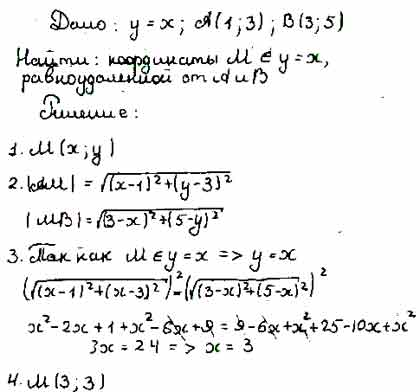 Дано: y = x; A(1; 3); B(3; 5)
Найти: координаты M ∈ y = x,
равноудаленной от A и B
Решение:
1. M(x; y)
2. |AM| = √((x-1)²+(y-3)²)
|MB| = √((3-x)²+(5-y)²)
3. Так как M ∈ y = x => y = x
(√((x-1)²+(x-3)²))² = (√((3-x)²+(5-x)²))²
x² - 2x + 1 + x² - 6x + 9 = 9 - 6x + x² + 25 - 10x + x²
3x = 24 => x = 3
4. M(3; 3)